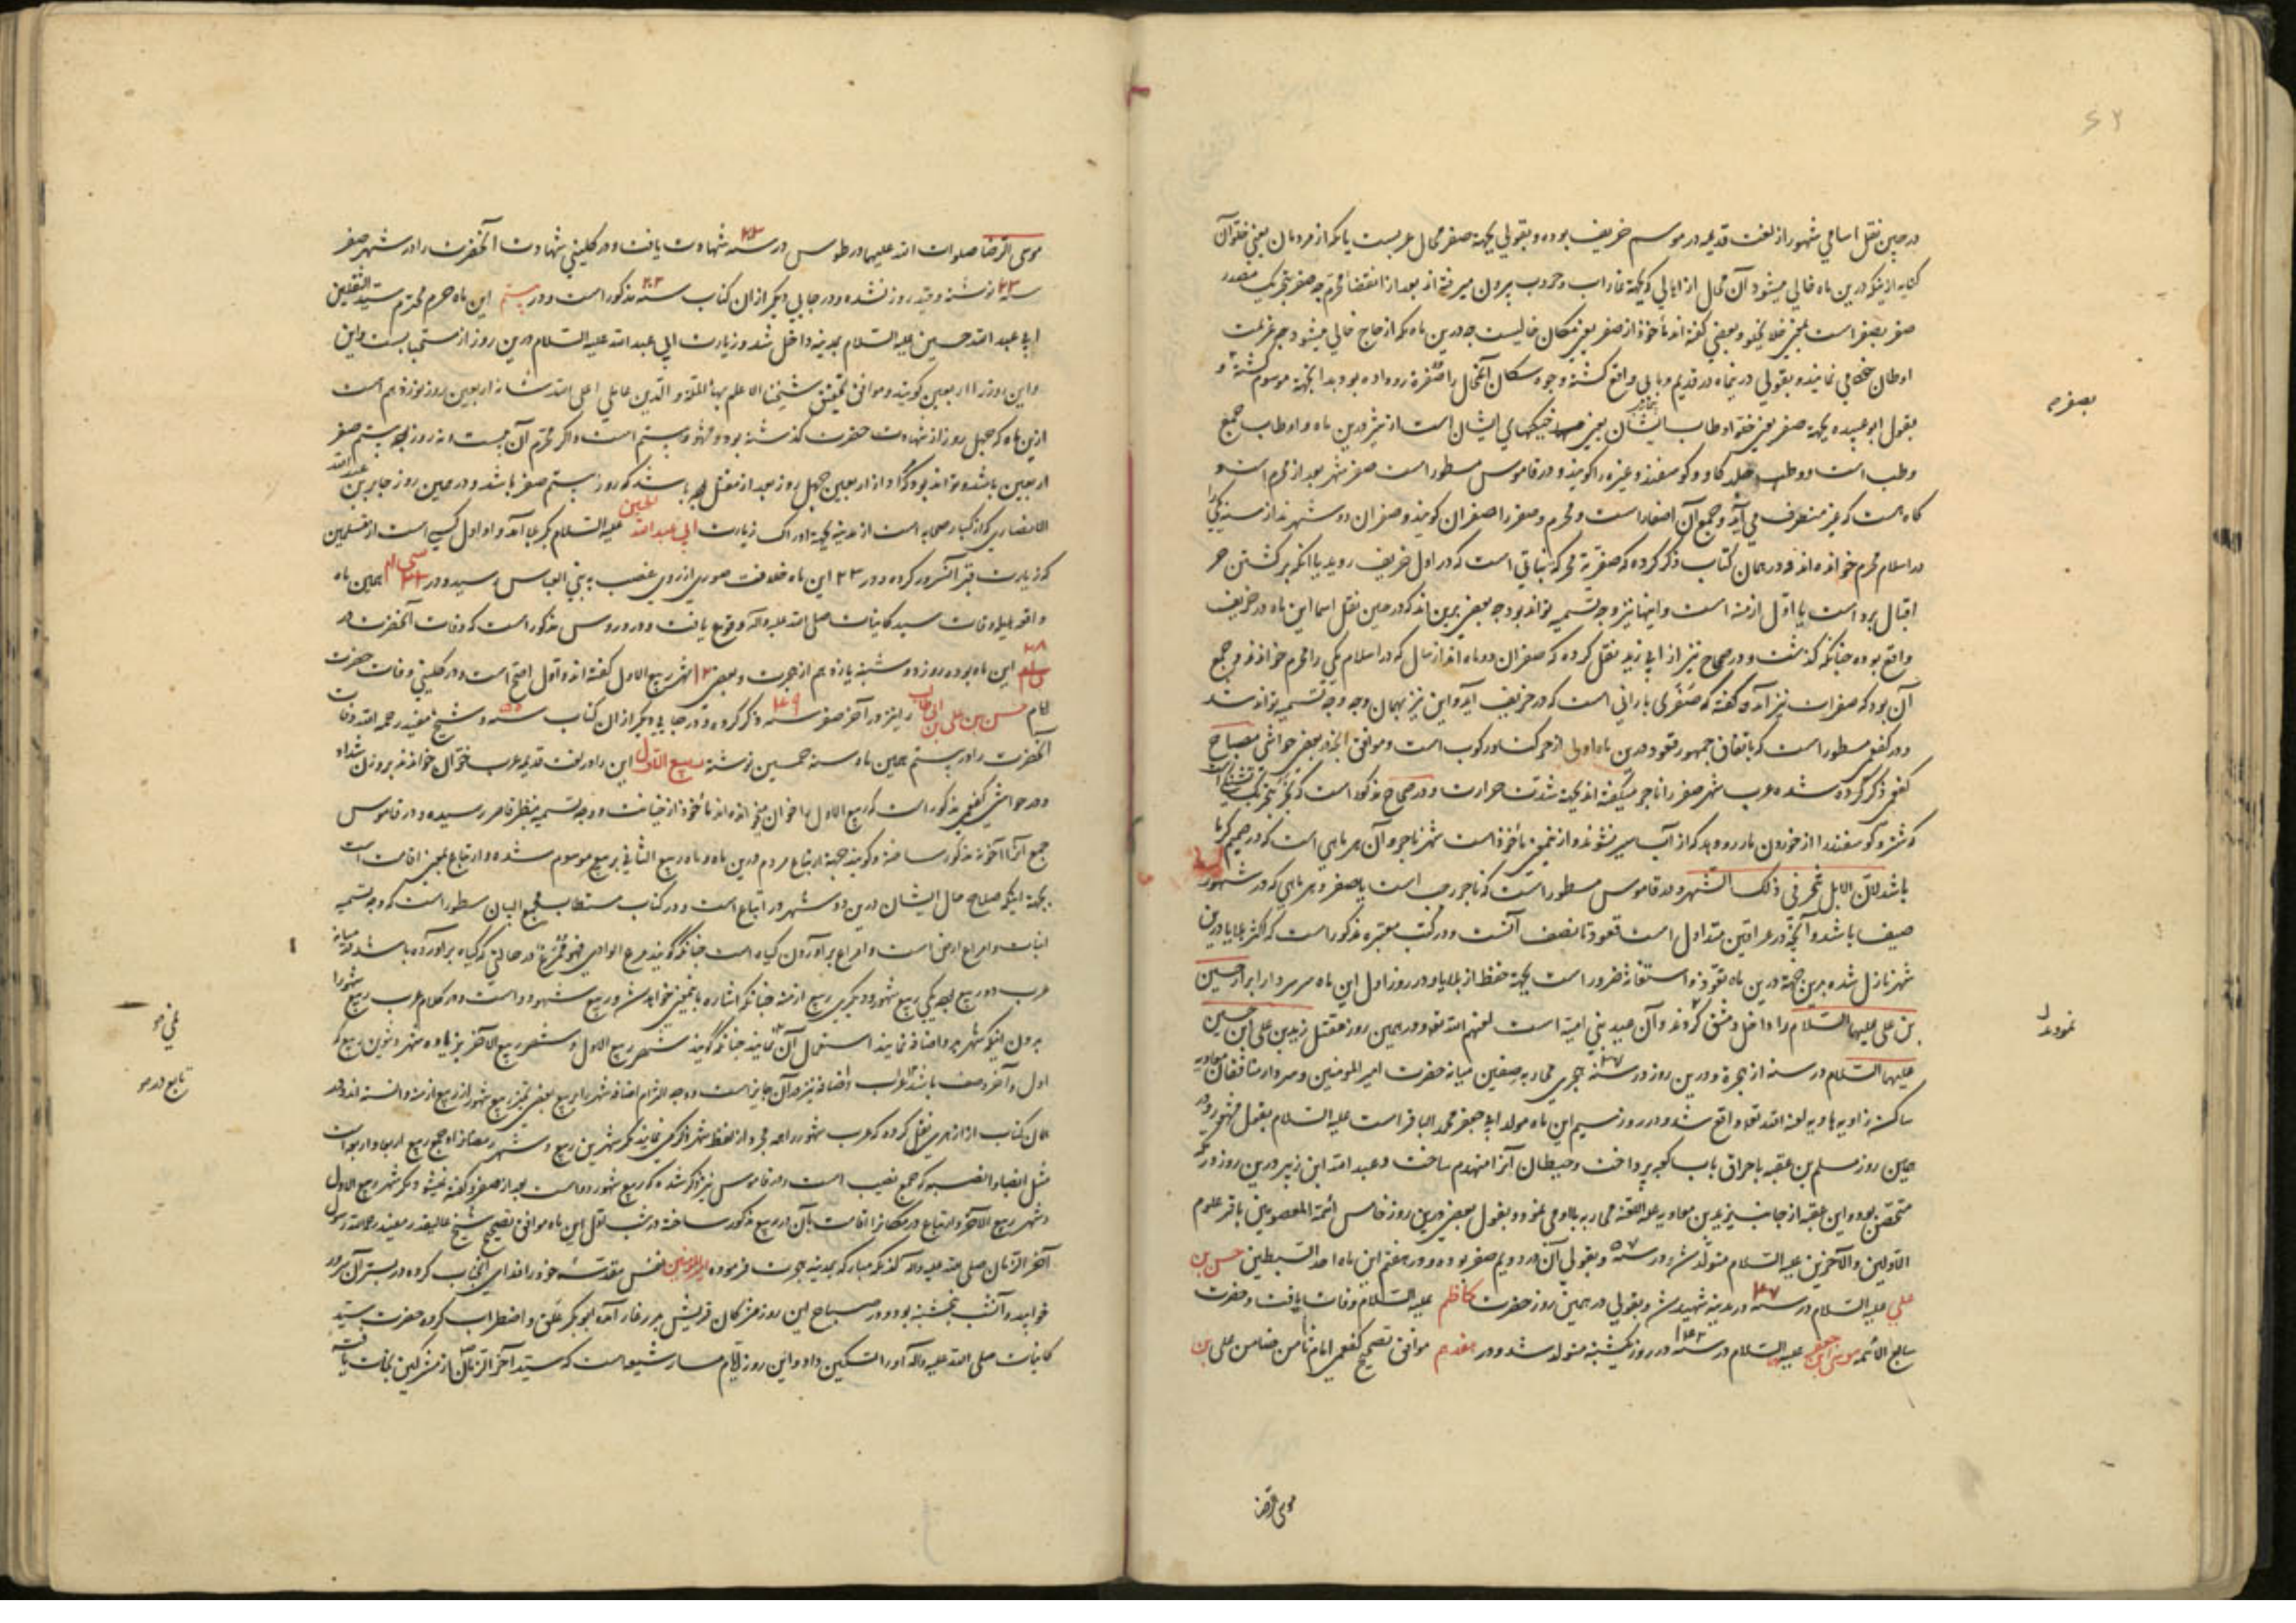 ۶۲
در حین نقل اسامی شهور از لغت قدیمه در موسم خریف بوده و بقولی بجهة صفر محال عربست یا مکه از مردمان یعنی خلو آن
کنایه از اینکه درین ماه خالی میشود آن محال از اهالی که بجهة غارات و حروب بیرون میرفته‌اند بعد از انقضاء محرم چه صفر بتحریک مصدر
صفر یصفر است بمعنی خلا یخلو و بعضی گفته‌اند مأخوذ از صفر یعنی مکان خالیست چه درین ماه مکه از حاج خالی میشود چه عزیمت
اوطان خود می نمایند و بقولی درینماه در قدیم وبایی واقع گشته وجوه سکان آنمحال را صفرة رو داده بود بدانجهة موسوم گشته و
بقول ابو عبیده بجهة صفر یعنی خلو اوطاب ایشان یعنی خیکهای ایشان است از شیر درین ماه و اوطاب جمع
وطب است و وطب جلد گاو و گوسفند و غیره را گویند و در قاموس مسطور است صفر شهر بعد از محرم است و
گاه هست که غیر منصرف می آید و جمع آن اصفار است و محرم و صفر را صفران گویند و صفران دو شهرند از سنه یکی را
در اسلام محرم خوانده‌اند و در همان کتاب ذکر کرده که صفریة محرکة نباتی است که در اول خریف روید یا آنکه برگشتن حر
اقبال برد است یا اول ازمنه است و اینها نیز وجه تسمیه تواند بود چه بعضی برین‌اند که در حین نقل اسما این ماه در خریف
واقع بوده چنانکه گذشت و در صحاح نیز از ابی زید نقل کرده که صفران دو ماه‌اند از سال که در اسلام یکی را محرم خواندند و جمع
آن بود که صفرات نیز آمده گفته که صفری بارانی است که در خریف آید و این نیز بهمان وجه وجه تسمیه تواند شد
و در کفعمی مسطور است که باتفاق جمهور قعود درین ماه اولی از حرکت و رکوب است و موافق آنچه در بعضی حواشی مصباح
کفعمی ذکر کرده شده عرب شهر صفر را ناجر میگفته‌اند بجهة شدت حرارت و در صحاح مذکور است که نجر بتحریک
که شتر و گوسفند را از خوردن مار رو دهد که از آب سیر نشوند و از همین مأخوذ است شهر ناجر و آن هر ماهی است که در صمیم گرما
باشد لان الابل تنجر فی ذلک الشهر و در قاموس مسطور است که ناجر رجب است یا صفر و هر ماهی که در شهور
صیف باشد و آنچه در عراقین متداول است قعود تا نصف آنست و در کتب معتبره مذکور است که اکثر بلایا درین
شهر نازل شده برین جهة درین ماه تعوذ و استغاثه ضرور است بجهة حفظ از بلایا و در روز اول این ماه سر سردار ابرار حسین
بن علی علیهما السلام را داخل دمشق کردند و آن عید بنی امیه است لعنهم الله تعا و در همین روز مقتل زید بن علی ابن حسین
علیهما السلام در سنه از هجرة و درین روز در سنه ۳۷ هجری محاربه صفین میانه حضرت امیر المومنین و سردار منافقان معاویه
ساکن زاویه هاویه لعنه الله تعا واقع شد و در روز سیم این ماه مولد ابی جعفر محمد الباقر است علیه السلام بقول مشهور و در
همین روز مسلم بن عقبه باحراق باب کعبه پرداخت و حیطان آنرا منهدم ساخت و عبد الله ابن زبیر درین روز در مکه
متحصن بود و ابن عقبه از جانب یزید بن معاویه علیه اللعنة محاربه با او می نمود و بقول بعضی درین روز خامس ائمة المعصومین باقر علوم
الاولین والآخرین علیه السلام متولد شد در سنه ۵۷ و بقولی آن در دویم صفر بوده و در هفتم این ماه احد السبطین حسن بن
علی علیه السلام در سنه ۴۷ در مدینه شهید شد و بقولی در همین روز حضرت کاظم علیه السلام وفات یافت و حضرت
سابع الائمه موسی بن جعفر علیه السلام در سنه ۱۲۸ در روز یکشنبه متولد شد و در هفدهم موافق تصحیح کفعمی امام ثامن ضامن علی بن
موسی الرضا
بصفره
نمودند
موسی الرضا صلوات الله علیهما در طوس در سنه شهادت یافت و در کلینی شهادت آنحضرت را در شهر صفر
نوشته و قید روز نشده و در جایی دیگر از ان کتاب سنه ۲۰۳ مذکور است و در بیستم این ماه حرم محترم سید الثقلین
ابی عبد الله حسین علیه السلام بمدینه داخل شد و زیارت ابی عبد الله علیه السلام درین روز از مستحبا ست و این
و این روز را اربعین گویند و موافق تحقیق شیخنا الاعلم بهاء الملة و الدین عاملی اعلی الله شانه اربعین روز نوزدهم است
ازین ماه که چهل روز از شهادت حضرت گذشته بود و مشهور بیستم است و اگر محرم آن بیست و نه روز بود بیستم صفر
اربعین باشد و تواند بود که او از اربعین چهل روز بعد از مقتل باشد که روز بیستم صفر باشد و در همین روز جابر بن عبد الله
الانصاری که از کبار صحابه است از مدینه بجهة ادراک زیارت ابی عبد الله الحسین علیه السلام بکربلا آمد و او اول کسی است از مسلمین
که زیارت قبر آنسرور کرده و در ۲۲ این ماه خلافت صوری از روی غصب به بنی العباس رسید و در همین ماه
واقعه هایله وفات سید کاینات صلی الله علیه وآله وقوع یافت و در دروس مذکور است که وفات آنحضرت در
۲۸ این ماه بوده روز دوشنبه یازدهم از هجرت و بعضی ۱۲ شهر ربیع الاول گفته‌اند و اول اصح است و در کلینی وفات حضرت
امام حسن بن علی بن ابی طالب را نیز در آخر صفر سنه ۴۹ ذکر کرده و در جایی دیگر از ان کتاب سنه ۵۰ و شیخ مفید رحمه الله وفات
آنحضرت را در بیستم همین ماه سنه خمسین نوشته ربیع الاول این را در لغت قدیمه عرب خوّان خوانده‌اند بر وزن شداد
و در حواشی کفعمی مذکور است که ربیع الاول را خوان میخوانده‌اند مأخوذ از خیانت و وجه تسمیه بنظر قاصر رسیده و در قاموس
جمع آنرا آخونه مذکور ساخته و گویند بجهة ارتباع مردم درین ماه و ماه ربیع الثانی بربیع موسوم شده و ارتباع بمعنی اقامت است
بجهة اینکه صلاح حال ایشان درین دو شهر در ارتباع است و در کتاب مستطاب مجمع البیان مسطور است که وجه تسمیه
انبات و امراع ارض است و امراع بر آوردن گیاه است چنانکه گویند مرع الوادی فهو ممرع در حالتی که گیاه بر آورده باشد و میانه
عرب دو ربیع بود یکی ربیع شهور و دیگری ربیع ازمنه چنانکه اشاره بآن میخواهد شد و ربیع شهور دو است و در کلام عرب ربیع شهور را
بدون اینکه شهر بر و اضافه نمایند استعمال آن ننمایند چنانکه گویند شهر ربیع الاول و شهر ربیع الآخر بزیاده شهر و تنوین ربیع که
اول و آخر وصف باشد در اعراب و اضافه نیز در آن جایز است و وجه التزام اضافه شهر را بربیع بعضی تمیز ربیع شهور از ربیع ازمنه دانسته‌اند و در
همان کتاب از ازهری نقل کرده که عرب شهور را همه مجرد از لفظ شهر ذکر می نمایند مگر شهرین ربیع و شهر رمضانرا و جمع ربیع اربعا و اربعه است
مثل انصبا و انصبه که جمع نصیب است و در قاموس نیز ذکر شده که ربیع شهور دو ماست بعد از صفر و گفته نمیشود مگر شهر ربیع الاول
و شهر ربیع الآخر و ارتباع در مکانرا اقامت بآن در ربیع مذکور ساخته و در شب اول این ماه موافق تصحیح شیخ عالیقدر مفید رحمه الله رسول
آخر الزمان صلی الله علیه وآله از مکه مبارکه بمدینه هجرت فرموده امیر المؤمنین نفس مقدسه خود را فدای آنجناب کرده در بستر آن سرور
خوابید و آنشب پنجشنبه بود و در صباح این روز مشرکان قریش بر در غار آمده ابو بکر قلق و اضطراب کرده حضرت سید
کاینات صلی الله علیه وآله او را تسکین داد و این روز ایام مسار شیعه است که سید آخر الزمان از مشرکین نجات یافت